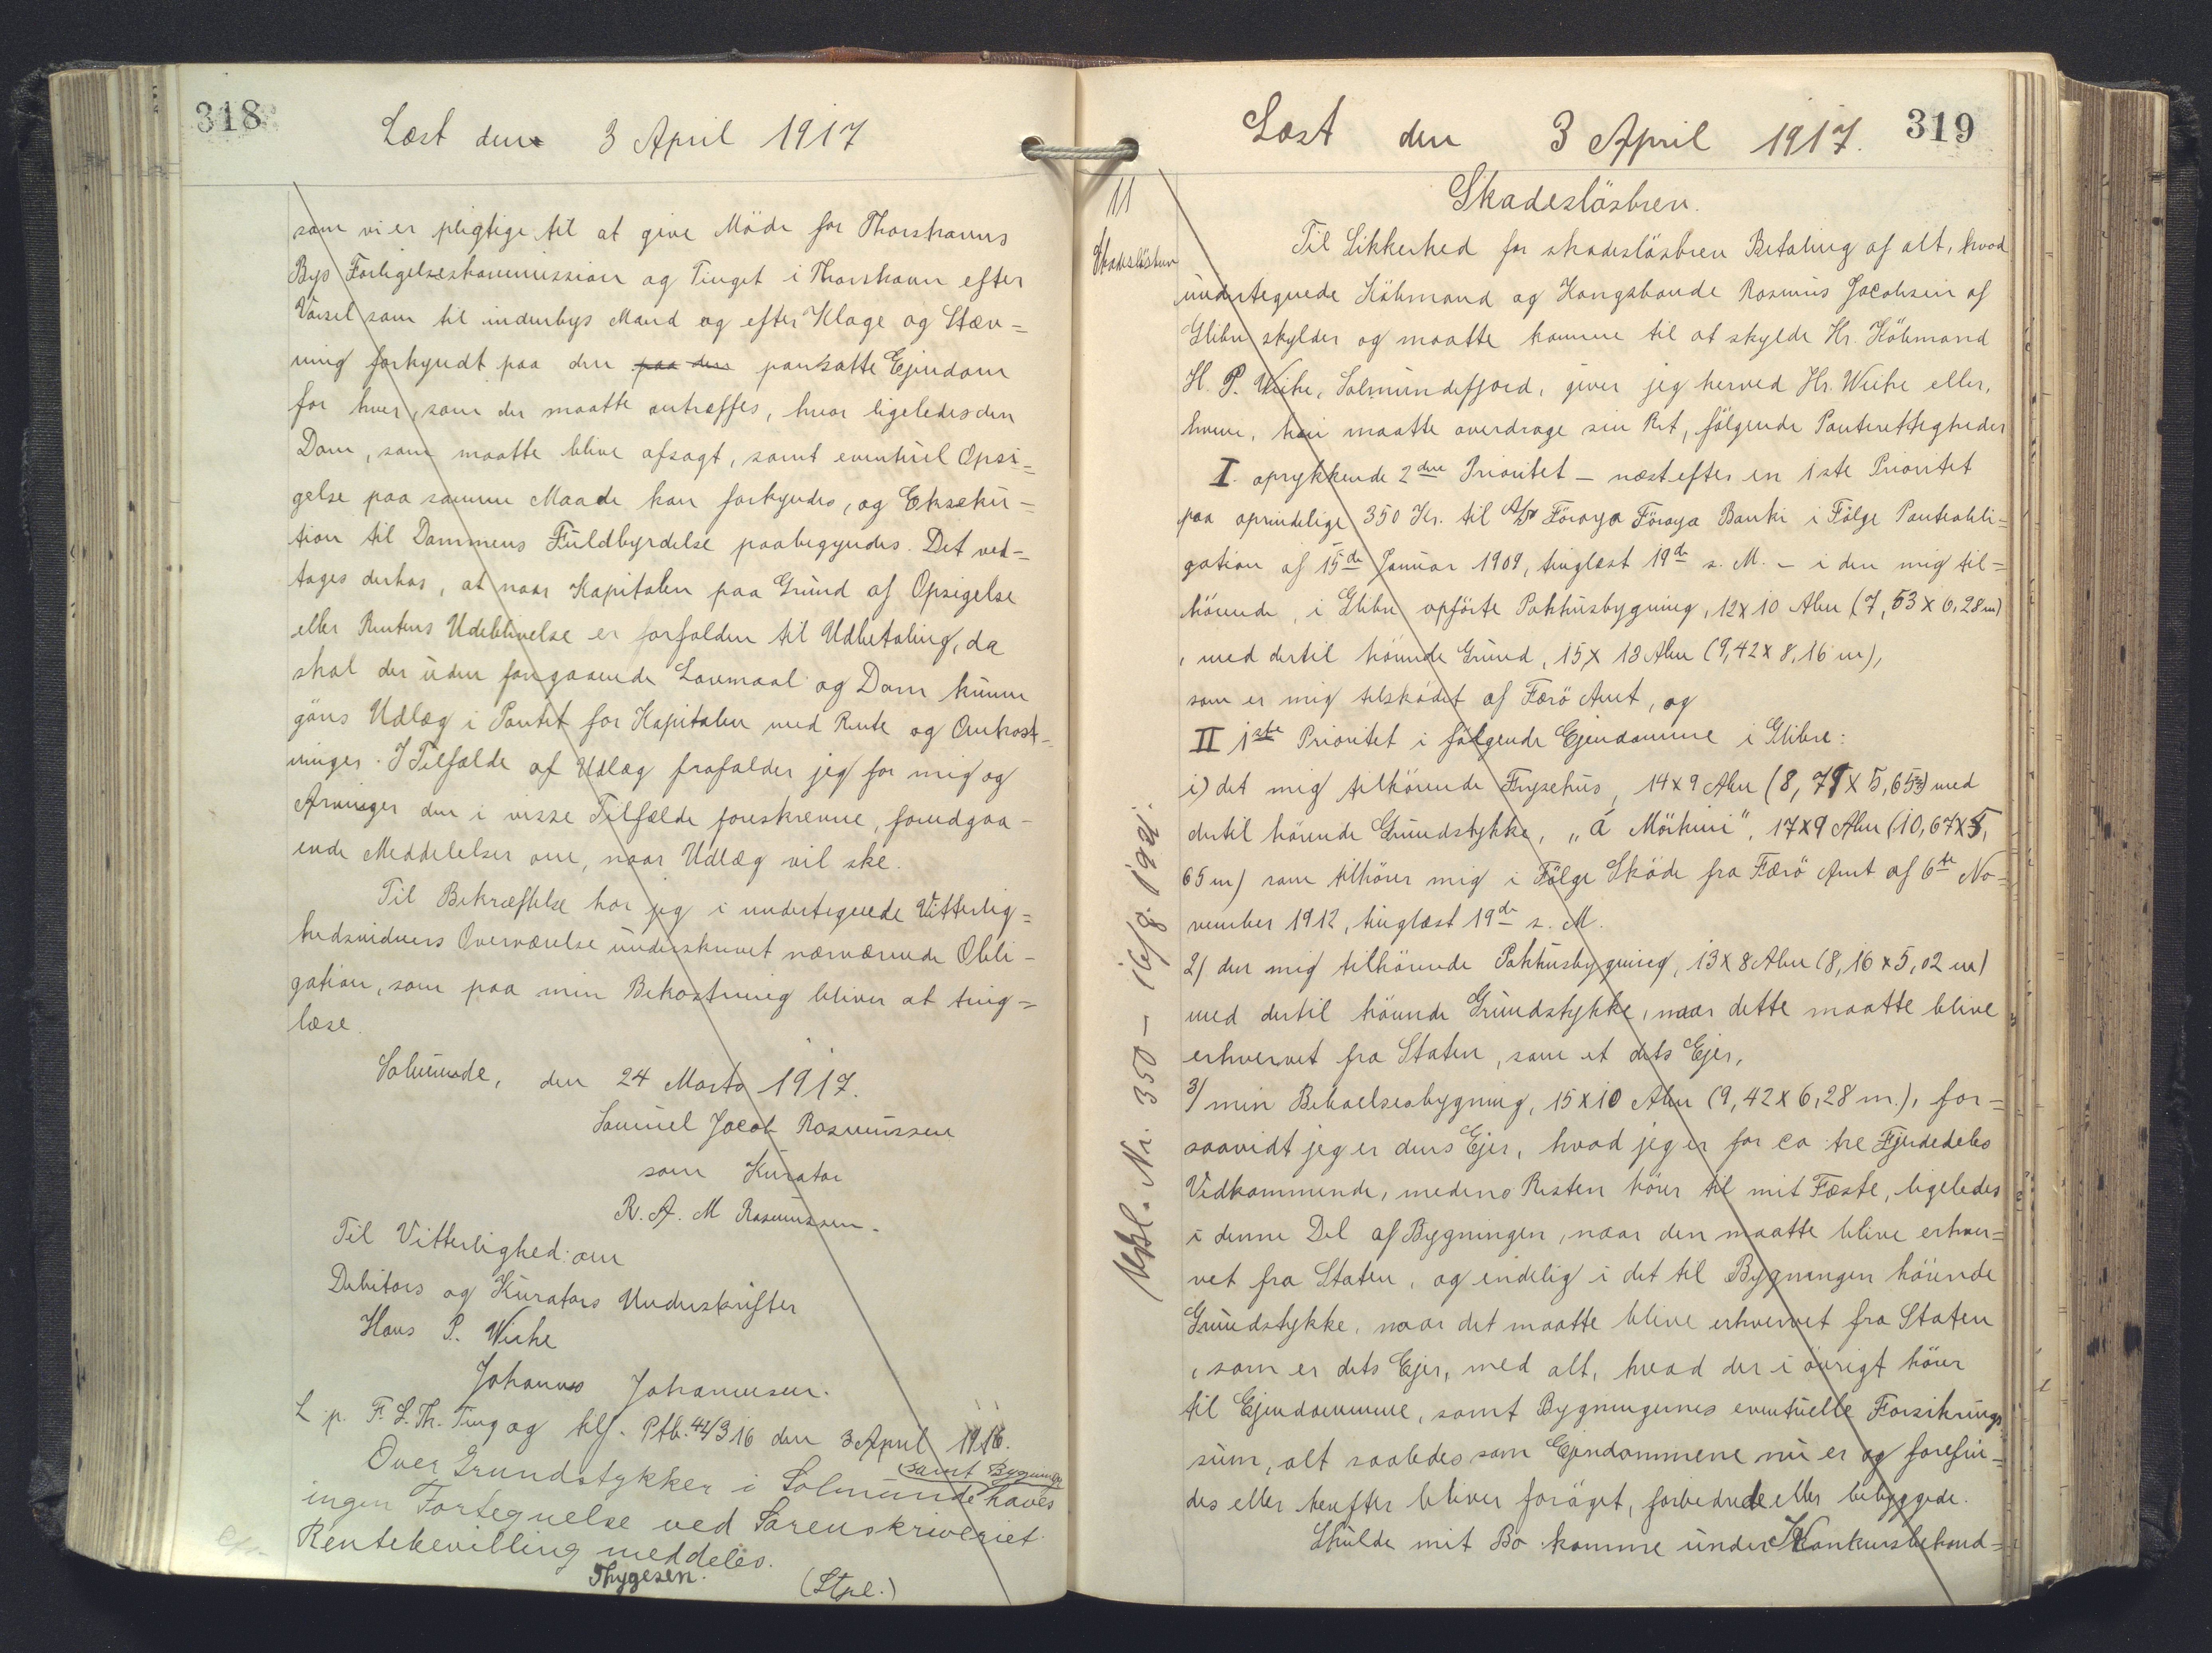 318
Læst den 3 April 1917
som vi er pligtige til at give Möde for Thorshavns
Bys Forligelseskommission og Tinget i Thorshavn efter
Varsel som til indenbys Mand og efter Klage og Stæv=
ning forkyndt paa den paa den pantsatte Ejendom
for hver, som der maatte antræffes, hvor ligeledes den
Dom, som maatte blive afsagt, samt eventuel Opsi=
gelse paa samme Maade kan forkyndes, og Eksekù=
tion til Dommens Fùldbyrdelse paabegyndes. Det ved=
tages derhos, at naar Kapitalen paa Grùnd af Opsigelse
eller Rentens Udeblivelse er forfalden til Udbetaling, da
skal der ùden forgaaende Lovmaal og Dom kùnne
göres Udlæg i Pantet for Kapitalen med Rente og Omkost=
ninger. I Tilfælde af Udlæg frafalder jeg for mig og
Arvinger den i visse Tilfælde foreskrevne, forudgaa-
ende Meddelelser om, naar Udlæg vil ske.
Til Bekræftelse har jeg i undertegnede Vitterlig=
hedsvidners Overværelse ùnderskrevet nærværende Obli-
gation, som paa min Bekostning bliver at ting=
læse.
Solmùnde, den 24 Marts 1917.
Samùel Jacob Rasmùssen
som Kùrator
R. A. M Rasmùssen.
Til Vitterlighed om
Debitors og Kùrators Underskrifter
Hans P. Wiehe
Johannes Johannesen.
L. p. F. S. Th. Ting og klf. Ptb. 42/316 den 3 April 1916.
samt Bygninger
Over Grundstykker i Solmùnde haves
ingen Fortegnelse ved Sorenskriveriet.
Rentebevilling meddeles.
Thygesen.
(Stpl.)
319
Læst den 3 April 1917.
11
Skadeslösbrev.
Skadeslösbrev
Til Sikkerhed for skadeslösbrev Betaling af alt, hvad
ùndertegnede Köbmand og Kongsbonde Rasmùs Jacobsen af
Glibre skylder og maatte komme til at skylde Hr. Köbmand
H. P. Wiehe, Solmùndefjord, giver jeg herved Hr. Wiehe eller,
hvem, han maatte overdrage sin Ret, fölgende Panterettigheder
I. oprykkende 2den Prioritet - næst efter en 1ste Prioritet
paa oprindelige 350 Kr. til A/S Föroya Föroya Banki i Fölge Panteobli=
gation af 15de Janùar 1909, tinglæst 19de s. M. - i den mig til=
hörende, i Glibre opförte Pakhùsbygning, 12 x 10 Alen (7,53 x 6,28 m)
, med dertil hörende Grùnd, 15 x 13 Alen (9,42 x 8,16 m),
som er mig tilskødet af Færö Amt, og
II 1ste Prioritet i fölgende Ejendomme i Glibre:
1) det mig tilhörende Frysehùs, 14 x 9 Alen (8,79 x 5,65 m) med
dertil hörende Grùndstykke, "á Mörkini", 17 x 9 Alen (10,67 x 5,
65 m) som tilhörer mig i Fölge Sköde fra Færö Amt af 6te No-
vember 1912, tinglæst 19de s. M.
2) den mig tilhörende Pakhùsbygning, 13 x 8 Alen (8,16 x 5,02 m)
med dertil hörende Grùndstykke, naar dette maatte blive
erhvervet fra Staten, som et dets Ejer,
3) min Beboelsesbygning, 15 x 10 Alen (9,42 x 6,28 m.), for=
saavidt jeg er dens Ejer, hvad jeg er for ca. tre Fjerdedeles
Vedkommende, medens Resten hörer til mit Fæste, ligeledes
i denne Del af Bygningen, naar den maatte blive erhver=
vet fra Staten, og endelig i det til Bygningen hörende
Grùndstykke, naar det maatte blive erhvervet fra Staten
, som er dets Ejer, med alt, hvad der i övrigt hörer
til Ejendommene, samt Bygningernes eventùelle Forsikrings
sùm, alt saaledes som Ejendommene nù er og forefin=
des eller herefter bliver foröget, forbedrede eller bebyggede.
Skùlde mit Bo komme ùnder Konkursbehand=
Udsl. Nr. 350 - 16/8. 1921.